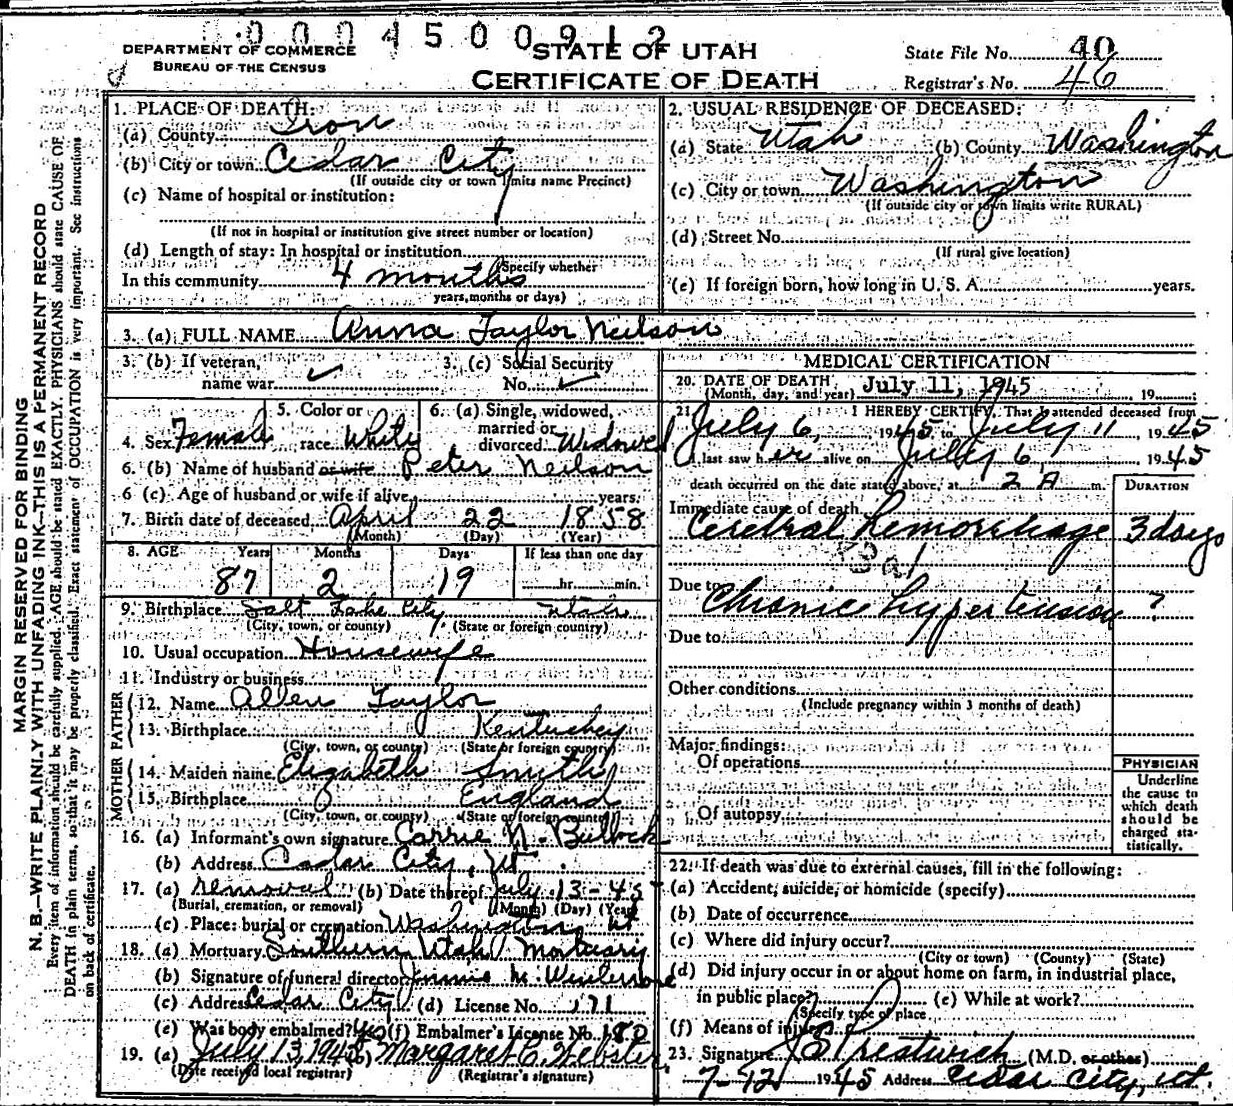 00004500912
DEPARTMENT OF COMMERCE
BUREAU OF THE CENSUS
STATE OF UTAH
CERTIFICATE OF DEATH
State File No. 40
Registrar's No. 46
MARGIN RESERVED FOR BINDING
N. B.—WRITE PLAINLY WITH UNFADING INK—THIS IS A PERMANENT RECORD
Every item of information should be carefully supplied. AGE should be stated EXACTLY. PHYSICIANS should state CAUSE OF
DEATH in plain terms, so that it may be properly classified. Exact statement of OCCUPATION is very important. See instructions
on back of certificate.
1. PLACE OF DEATH:
(a) County Iron
(b) City or town Cedar City
(If outside city or town limits name Precinct)
(c) Name of hospital or institution:
(If not in hospital or institution give street number or location)
(d) Length of stay: In hospital or institution
(Specify whether
In this community 4 months
years, months or days)
2. USUAL RESIDENCE OF DECEASED:
(a) State Utah (b) County Washington
(c) City or town Washington
(If outside city or town limits write RURAL)
(d) Street No.
(If rural give location)
(e) If foreign born, how long in U. S. A. years.
3. (a) FULL NAME Anna Taylor Neilson
3. (b) If veteran, name war ✓
3. (c) Social Security No. ✓
4. Sex Female
5. Color or race White
6. (a) Single, widowed, married or divorced Widowed
6. (b) Name of husband or wife Peter Neilson
6 (c). Age of husband or wife if alive, years.
7. Birth date of deceased April 22 1858
(Month) (Day) (Year)
8. AGE Years Months Days If less than one day
87 2 19 hr. min.
9. Birthplace Salt Lake City Utah
(City, town, or county) (State or foreign country)
10. Usual occupation Housewife
11. Industry or business
FATHER
12. Name Allen Taylor
13. Birthplace Kentuckey
(City, town, or county) (State or foreign country)
MOTHER
14. Maiden name Elizabeth Smith
15. Birthplace England
(City, town, or county) (State or foreign country)
16. (a) Informant's own signature Carrie N. Bullock
(b) Address Cedar City, Ut.
17. (a) removal (b) Date thereof July 13-45
(Burial, cremation, or removal) (Month) (Day) (Year)
(c) Place: burial or cremation Washington Ut
18. (a) Mortuary Southern Utah Mortuary
(b) Signature of funeral director M.
(c) Address Cedar City (d) License No. 171
(e) Was body embalmed? Yes (f) Embalmer's License No. 180
19. (a) July 13, 1945 (b) Margaret C. Webster
(Date received local registrar) (Registrar's signature)
MEDICAL CERTIFICATION
20. DATE OF DEATH July 11, 1945 19
(Month, day, and year)
21. I HEREBY CERTIFY, That I attended deceased from
July 6, 1945 to July 11, 1945
I last saw her alive on July 6, 1945
death occurred on the date stated above, at 2 A m.
DURATION
Immediate cause of death
Cerebral hemorrhage 3 days
Due to
Chronic hypertension ?
Due to
Other conditions
(Include pregnancy within 3 months of death)
Major findings:
Of operations
Of autopsy
PHYSICIAN
Underline
the cause to
which death
should be
charged sta-
tistically.
22. If death was due to external causes, fill in the following:
(a) Accident, suicide, or homicide (specify)
(b) Date of occurrence
(c) Where did injury occur?
(City or town) (County) (State)
(d) Did injury occur in or about home on farm, in industrial place,
in public place? (e) While at work?
(Specify type of place
(f) Means of injury
23. Signature Prestwich (M.D. or other)
7-12 1945 Address Cedar City, Ut.